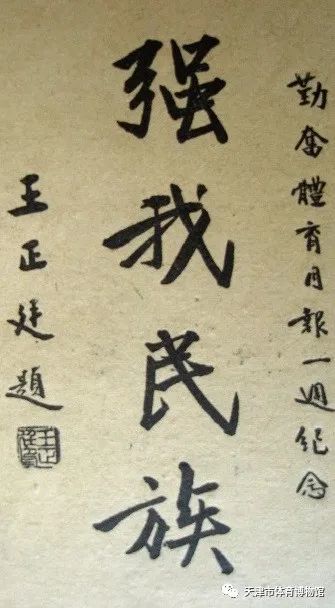 勤奮體育月報一週纪念
强我民族
王正廷題
天津市体育博物馆